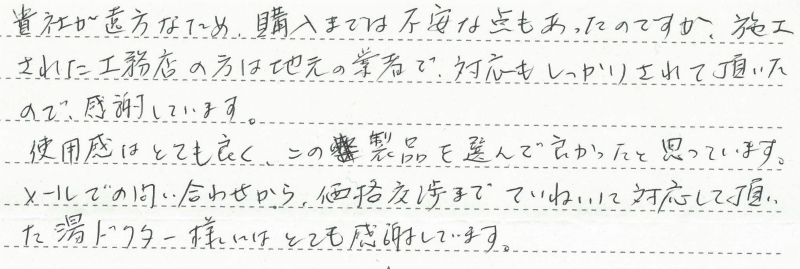 貴社が遠方なため、購入までは不安な点もあったのですが、施工
された工務店の方は地元の業者で、対応もしっかりされて頂いた
ので、感謝しています。
使用感はとても良く、この製品を選んで良かったと思っています。
メールでの問い合わせから、価格交渉までていねいに対応して頂い
た湯ドクター様にはとても感謝しています。